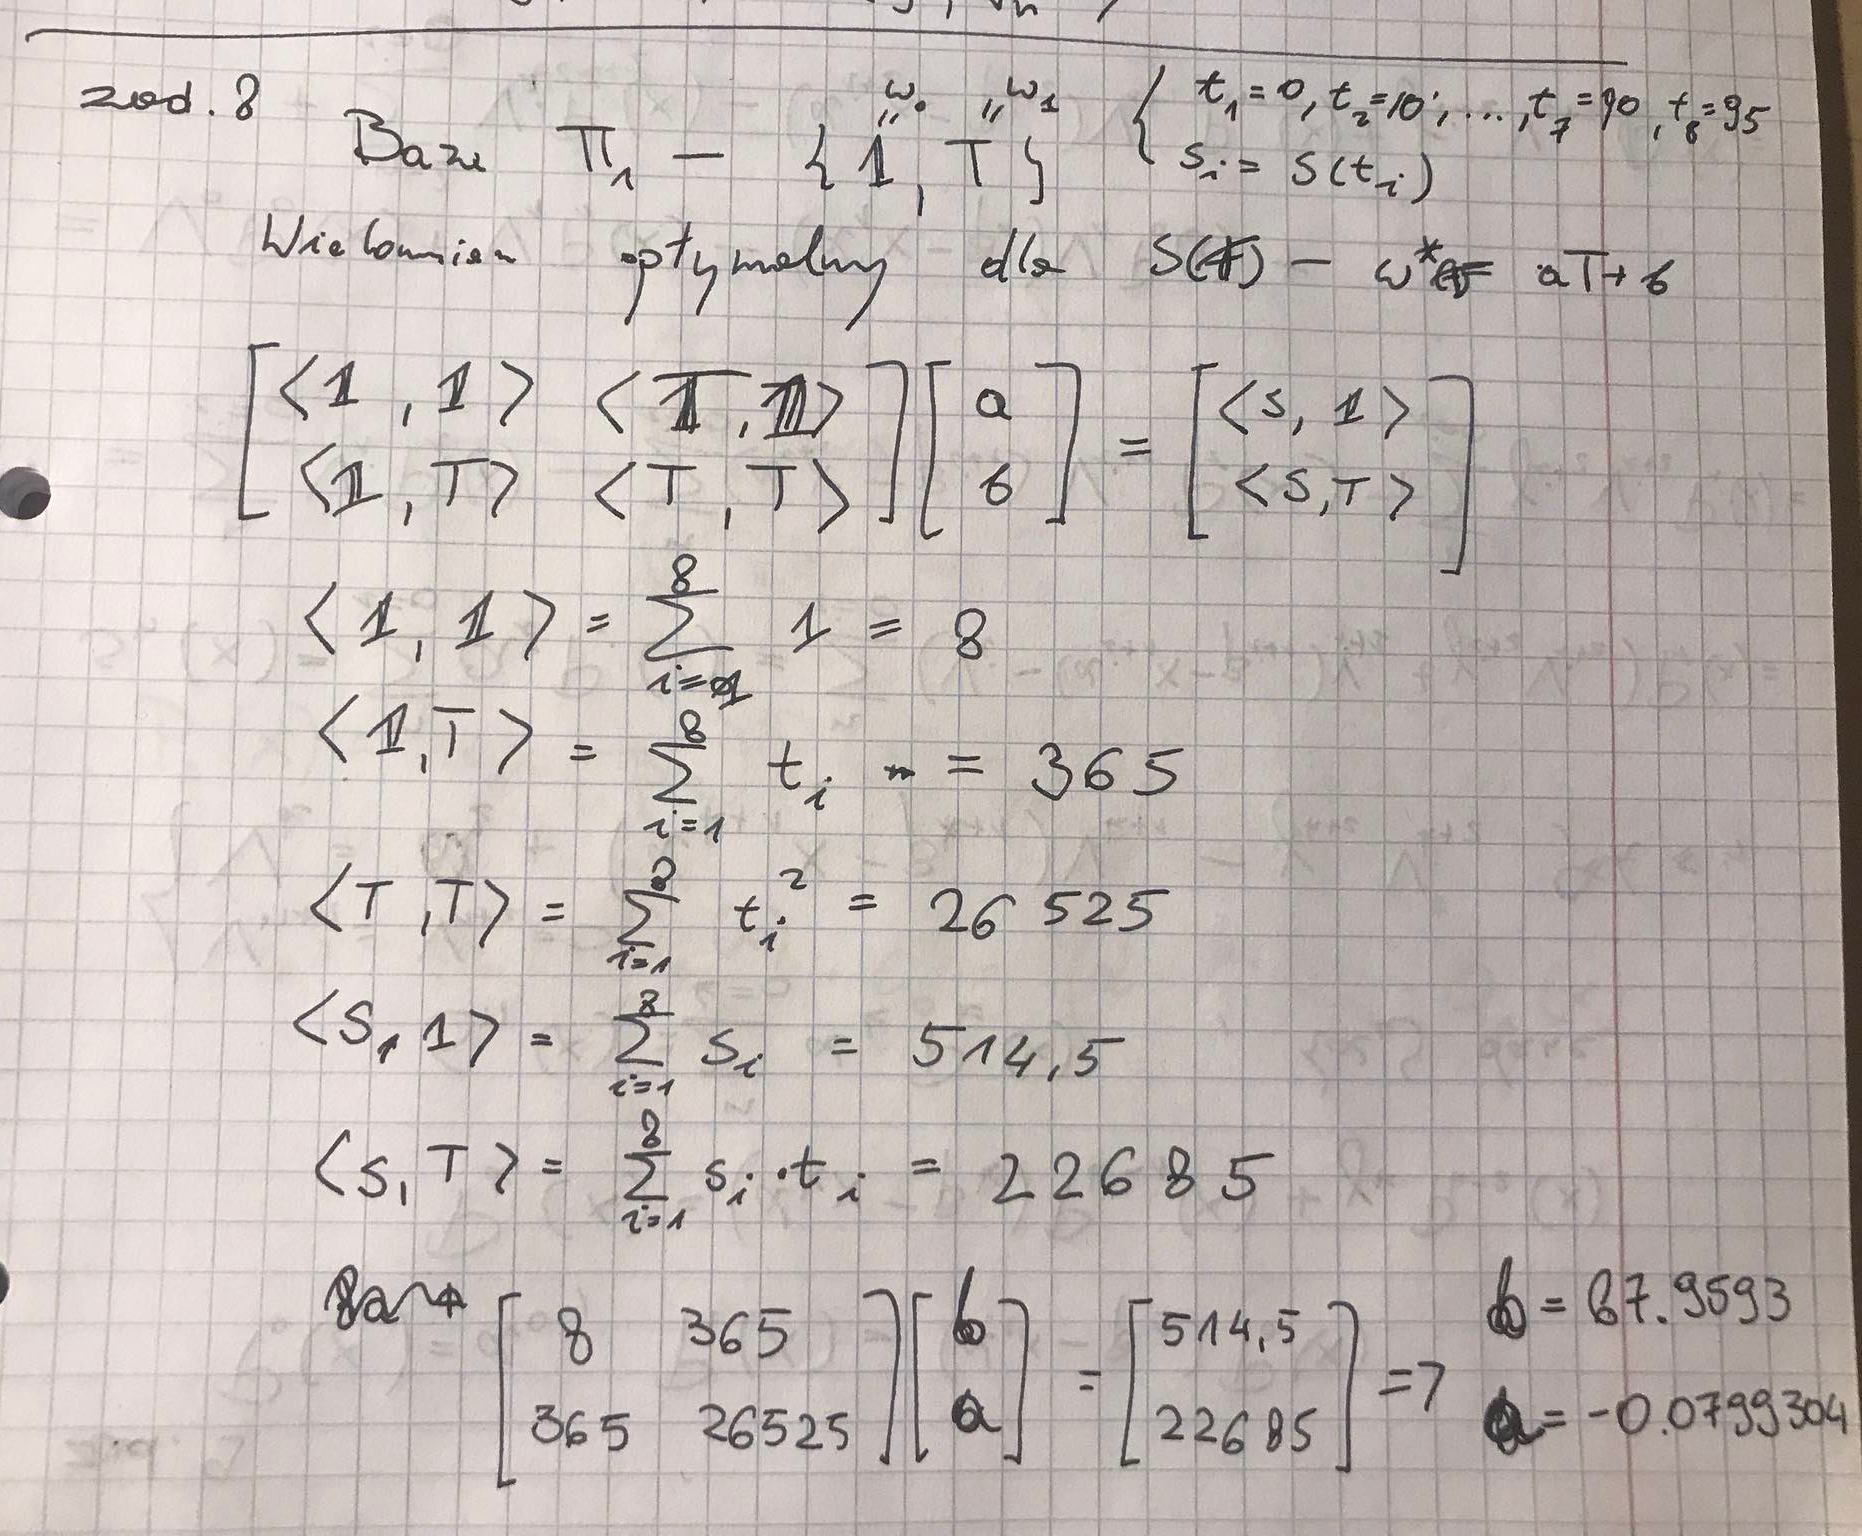 zad. 8
Baza Π₁ – {𝟙, T} "w₀ "w₁ { t₁=0, t₂=10, ..., t₇=90, t₈=95
sᵢ = S(tᵢ)
Wielomian optymalny dla S(T) – w* = aT+b
[<𝟙, 𝟙> <T, 𝟙>] [a] = [<S, 𝟙>]
[<𝟙, T> <T, T>] [b] [<S, T>]
<𝟙, 𝟙> = ∑_{i=1}^{8} 1 = 8
<𝟙, T> = ∑_{i=1}^{8} tᵢ = 365
<T, T> = ∑_{i=1}^{8} tᵢ² = 26 525
<S, 1> = ∑_{i=1}^{8} sᵢ = 514,5
<S, T> = ∑_{i=1}^{8} sᵢ · tᵢ = 22685
[8 365] [b] = [514,5] => b = 67.9593
[365 26525] [a] [22685] a = -0.0799304